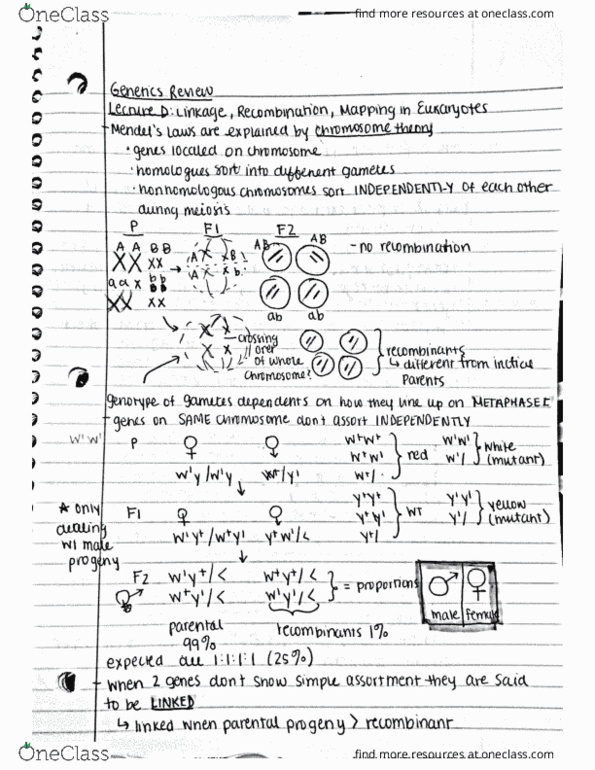 OneClass
find more resources at oneclass.com
Genetics Review
Lecture D: Linkage, Recombination, Mapping in Eukaryotes
- Mendel's Laws are explained by chromosome theory
• genes located on chromosome
• homologues sort into different gametes
• nonhomologous chromosomes sort INDEPENDENTLY of each other
during meiosis
P F1 F2
A A B B
A B
A b
a a b b
AB AB
- no recombination
ab ab
crossing
over
of whole
chromosome?
recombinants
↳ different from initial
parents
genotype of gametes dependents on how they line up on METAPHASE I
- genes on SAME chromosome don't assort INDEPENDENTLY
w'w' P ♀ w⁺w⁺ w'w'
w⁺w' red w'/ white
(mutant)
w'y/w'y w⁺/y' w⁺/·
y⁺y⁺ y'y'
y⁺y' WT y'/ yellow
(mutant)
y⁺/
★ only
dealing
w/ male
progeny
F1 ♀
w'y⁺/w⁺y' y⁺w'/<
F2 w'y⁺/< w⁺y⁺/<
w⁺y'/< w'y'/<
= proportions
♂ ♀
male female
parental
99%
recombinants 1%
expected all 1:1:1:1 (25%)
- when 2 genes don't show simple assortment they are said
to be LINKED
↳ linked when parental progeny > recombinant
OneClass
find more resources at oneclass.com